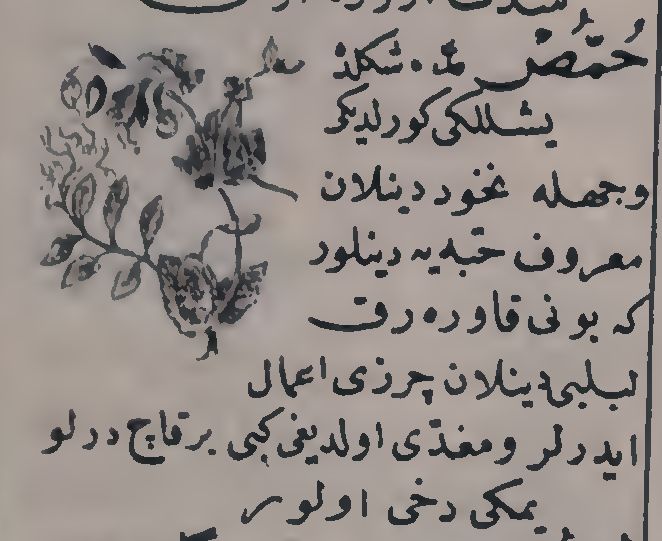 حُمَّصْ مده شكلد
يشللكى كورلديكر
وجمله نخود دينلان
معروف حبه يه دينلور
كه بونى قاوره رق
لبلبى دينلان چرزى اعمال
ايدرلر ومغذى اولديغى كبى برقاچ درلو
يمكى دخى اولور